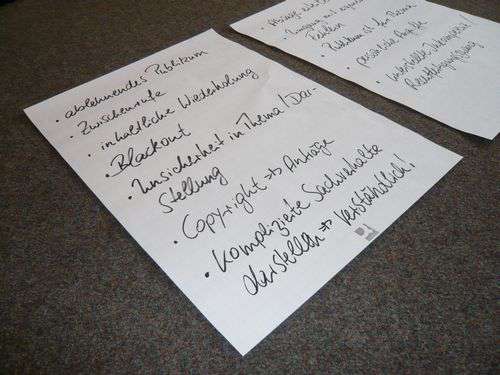 • ablehnendes Publikum
• Zwischenrufe
• inhaltliche Wiederholung
• Blackout
• Unsicherheit in Thema/Dar-
stellung
• Copyright => Anträge
• Komplizierte Sachverhalte
darstellen => verständlich!
• Umgang mit
Fehlern
• Publikum ist
• persönliche Angriffe